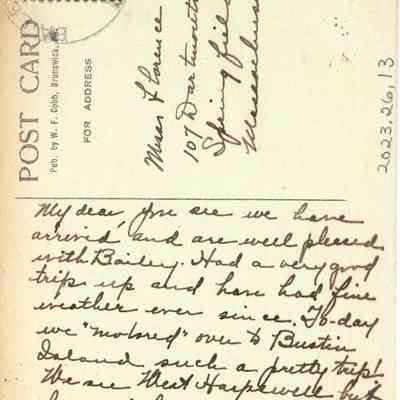 POST CARD
Pub. by W. F. Cobb, Brunswick,
FOR ADDRESS
Miss Florence
107 Dartmouth
Springfield
Massachus
2023.26.13
My dear, you see we have
arrived, and are well pleased
with Bailey. Had a very good
trip up and have had fine
weather ever since. To-day
we "motored" over to Bustin
Island such a pretty trip!
We see West Harpswell but